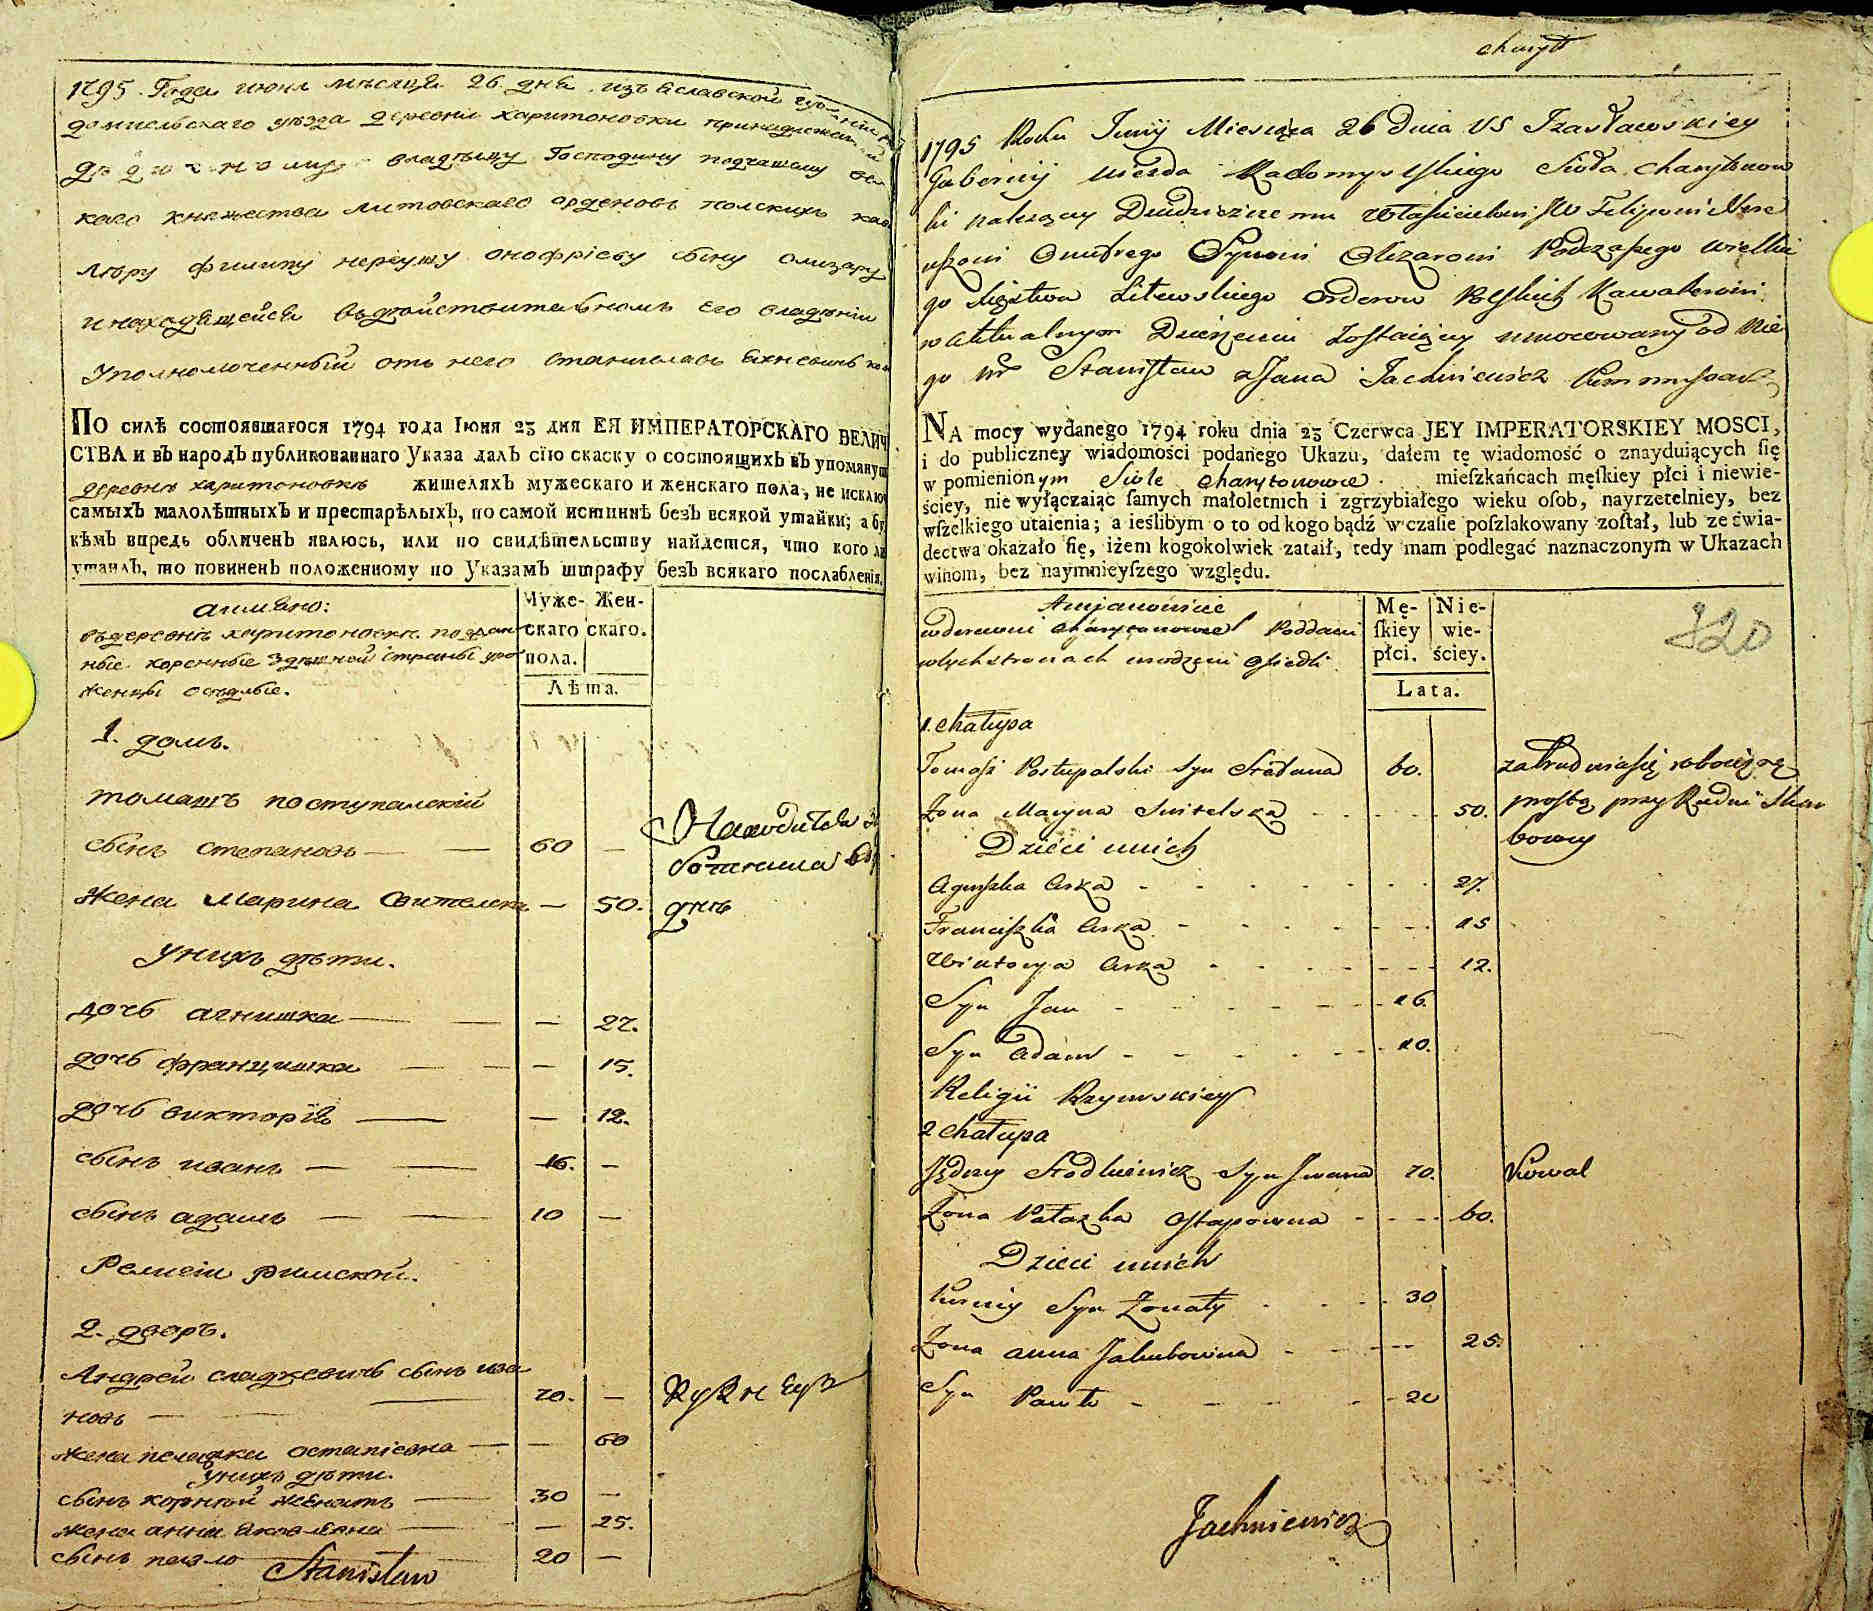 1795. Года июня мѣсяца 26. дня. изъ Яславской губерніи
домысльскаго уѣзда деревни харитоновки принадлежащей
владѣльцу Господину подчашему
каго княжества литовскаго орденовъ полскихъ
филипу нереушу онофріеву сыну олизару
и находящейся въ дѣйствительномъ его владѣніи
Уполномоченный отъ него станиславъ яхневичъ
ПО силѣ состоявшагося 1794 года Іюня 23 дня ЕЯ ИМПЕРАТОРСКАГО ВЕЛИЧ
СТВА и въ народъ публикованнаго Указа далъ сїю скаску о состоящихъ въ упомянут
деревнѣ харитоновкѣ жителяхъ мужескаго и женскаго пола, не исклю
самыхъ малолѣтныхъ и престарѣлыхъ, по самой истиннѣ безъ всякой утайки; а бу
кѣмъ впредь обличенъ явлюсь, или по свидѣтельству найдется, что кого ли
утаилъ, то повиненъ положенному по Указамъ штрафу безъ всякаго послабленія.
аимяно:
въ деревнѣ харитоновкѣ подан
ные коренные здѣшней страны уро
женцы осѣдлые.
Муже- Жен-
скаго скаго.
пола.
Лѣта.
1. домъ.
томашъ поступалскій
сынъ степановъ 60 —
Находится
жена Марина Свителска — 50.
днѣ
Унихъ дѣти.
дочь агнишка — 27.
дочь францишка — 15.
дочь викторія — 12.
сынъ иванъ 16. —
сынъ адамъ 10 —
Религіи римской.
2. дворъ.
Андрей сладкевичъ сынъ ива
новъ 70. — Кузнецъ
жена пелашка остапіевна — 60
Унихъ дѣти.
сынъ корнѣй женатъ 30 —
жена анна яковлевна — 25.
сынъ павло 20 —
Stanisław
1795 Roku Junij Miesiąca 26 Dnia VS Izasławskiey
Gubernij uiezda Radomyslskiego Sioła Charytonow
ki należący Dziedzicznemu Właścicielowi JW Filipowi Nere
uszowi Onufrego Synowi Olizarowi Podczaszego Wielkie
go Xięstwa Litewskiego Orderow Polskich Kawalerowi
w aktualnym Dzierżeniu Zostaiący umocowany od Nie
go Stanisław Jana Jachniewicz
NA mocy wydanego 1794 roku dnia 23 Czerwca JEY IMPERATORSKIEY MOSCI,
i do publiczney wiadomości podanego Ukazu, dałem tę wiadomość o znayduiących ſię
w pomienionym Siole Charytonowce mieſzkańcach męſkiey płci i niewie-
ściey, nie wyłączaiąc ſamych małoletnich i zgrzybiałego wieku oſob, nayrzetelniey, bez
wſzelkiego utaienia; a ieślibym o to od kogo bądź w czaſie poſzlakowany zoſtał, lub ze świa-
dectwa okazało ſię, iżem kogokolwiek zataił, tedy mam podlegać naznaczonym w Ukazach
winom, bez naymnieyſzego względu.
Amjanowicie
w derewni Charytonowce Poddani
w tych stronach urodzeni Osiedli
Mę- Nie-
ſkiey wie-
płci. ściey.
Lata.
320
1. Chałupa
Tomasz Postupalski Syn Stefana 60. zatrudnia się robocizną
Zona Maryna Switelska 50. prostą przy Rudni Skar
bowey
Dzieci u nich
Agniszka Curka 27.
Franciszka Curka 15
Wiktorya Curka 12.
Syn Jan 16.
Syn Adam 10.
Religii Rzymskiey
2 Chałupa
Jędrzy Słodkiewicz Syn Iwana 70. Kowal
Zona Pałazka Ostapowna 60.
Dzieci u nich
Kurniy Syn Zonaty 30
Zona Anna Jakubowna 25.
Syn Pawło 20
Jachniewicz